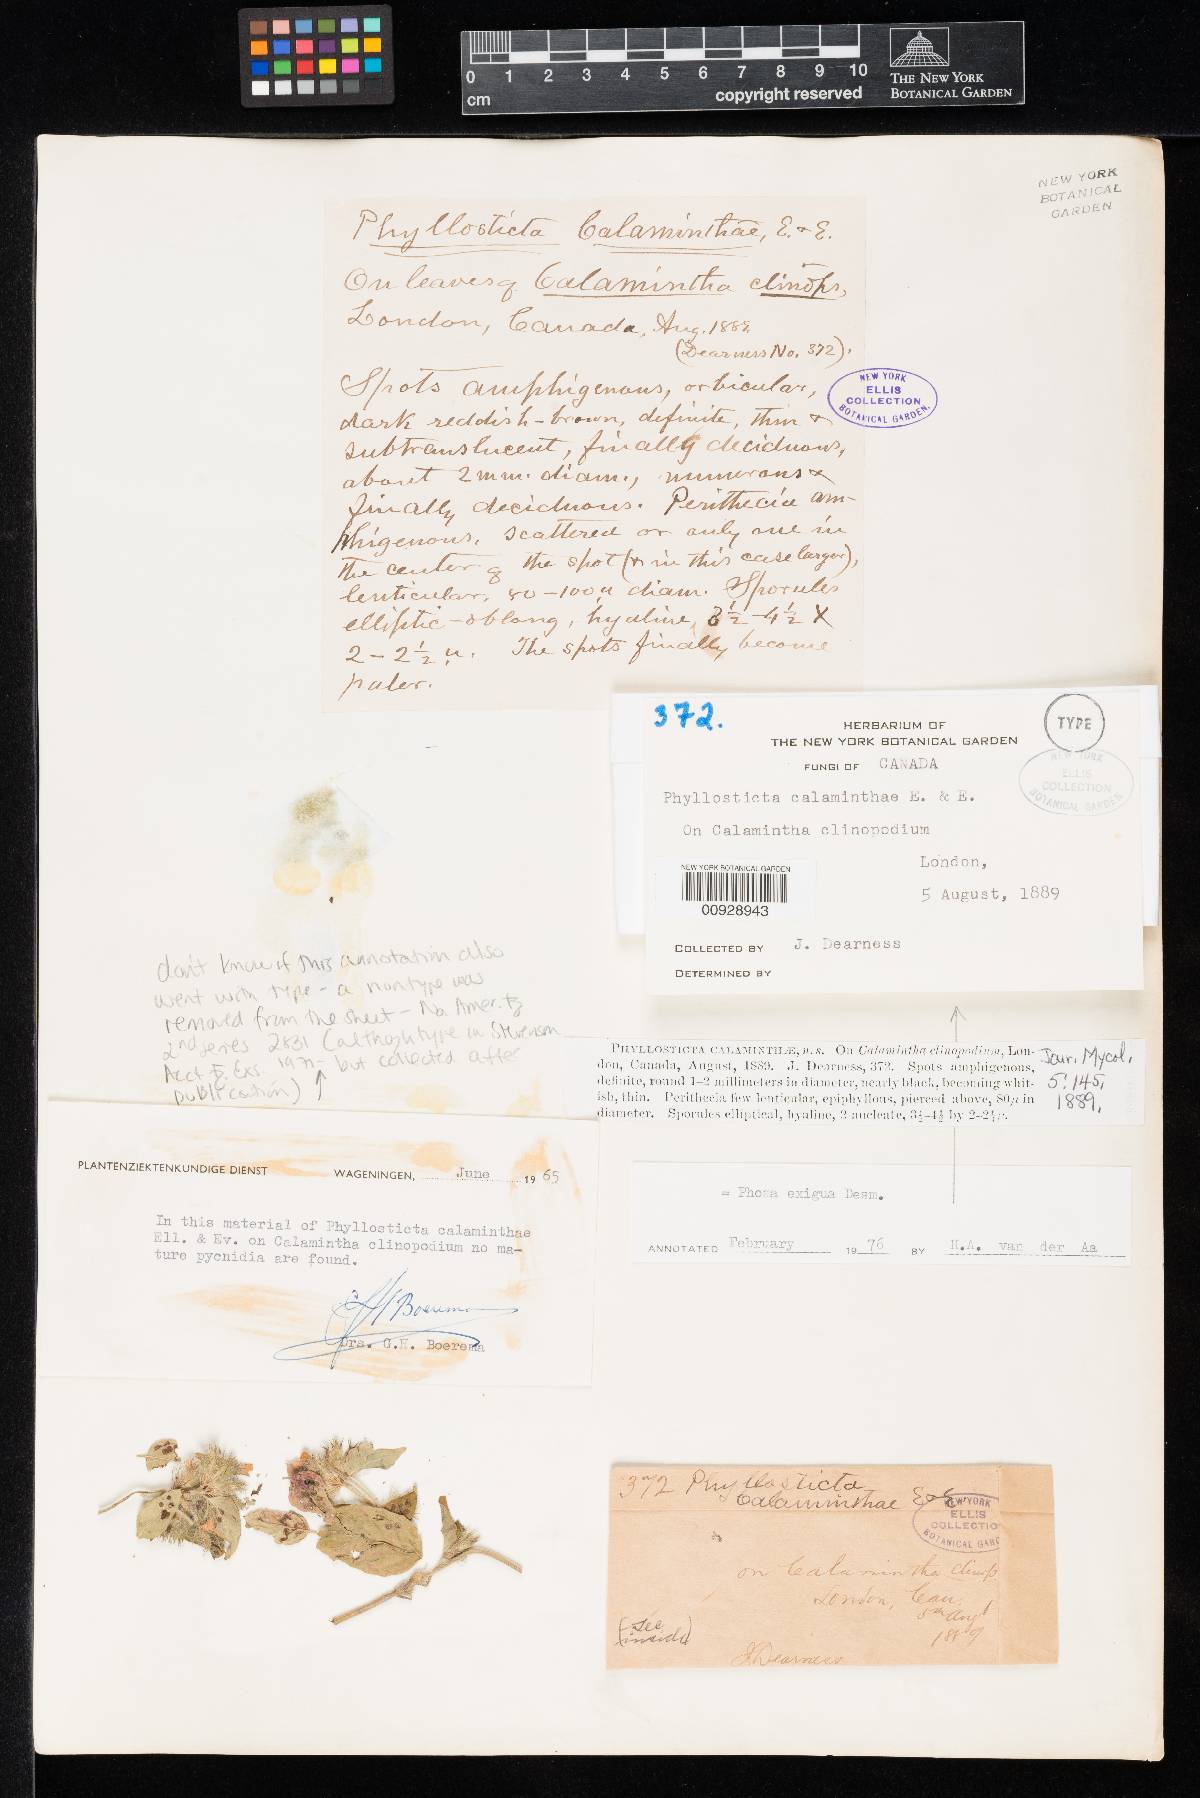 0 1 2 3 4 5 6 7 8 9 10
cm
copyright reserved
THE NEW YORK
BOTANICAL GARDEN
NEW YORK
BOTANICAL
GARDEN
Phyllosticta Calaminthae, E. & E.
On leaves of Calamintha clinop,
London, Canada, Aug. 1889
(Dearness No. 372).
Spots amphigenous, orbicular,
dark reddish-brown, definite, thin &
subtranslucent, finally deciduous,
about 2 mm. diam., numerous &
finally deciduous. Perithecia am-
phigenous, scattered or only one in
the center of the spot (& in this case larger),
lenticular, 80-100µ diam. Sporules
elliptic-oblong, hyaline, 3½-4½ X
2-2½ µ. The spots finally become
paler.
NEW YORK
ELLIS
COLLECTION
BOTANICAL GARDEN.
372.
HERBARIUM OF
THE NEW YORK BOTANICAL GARDEN
TYPE
FUNGI OF CANADA
NEW YORK
ELLIS
COLLECTION
BOTANICAL GARDEN
Phyllosticta calaminthae E. & E.
On Calamintha clinopodium
London,
5 August, 1889
NEW YORK BOTANICAL GARDEN
00928943
COLLECTED BY J. Dearness
DETERMINED BY
don't know if this annotation also
went with type - a nontype was
removed from the sheet - No. Amer. F.
2nd Series 2831 (although type in Stevenson
Acct F. Exs. 1971 - but collected after
publication) ↑
PHYLLOSTICTA CALAMINTHÆ, n. s. On Calamintha clinopodium, Lon-
don, Canada, August, 1889. J. Dearness, 372. Spots amphigenous,
definite, round 1-2 millimeters in diameter, nearly black, becoming whit-
ish, thin. Perithecia few lenticular, epiphyllous, pierced above, 80µ in
diameter. Sporules elliptical, hyaline, 2 nucleate, 3½-4½ by 2-2½µ.
Jour. Mycol.
5:145,
1889.
PLANTENZIEKTENKUNDIGE DIENST WAGENINGEN, June 1965
In this material of Phyllosticta calaminthae
Ell. & Ev. on Calamintha clinopodium no ma-
ture pycnidia are found.
GH Boerema
Drs. G.H. Boerema
= Phoma exigua Desm.
ANNOTATED February 1976 BY H.A. van der Aa
372 Phyllosticta
Calaminthae E & E
NEW YORK
ELLIS
COLLECTIO
BOTANICAL GARD
on Calamintha clinop
London, Can.
5th Augt
1889
(see
inside)
J. Dearness